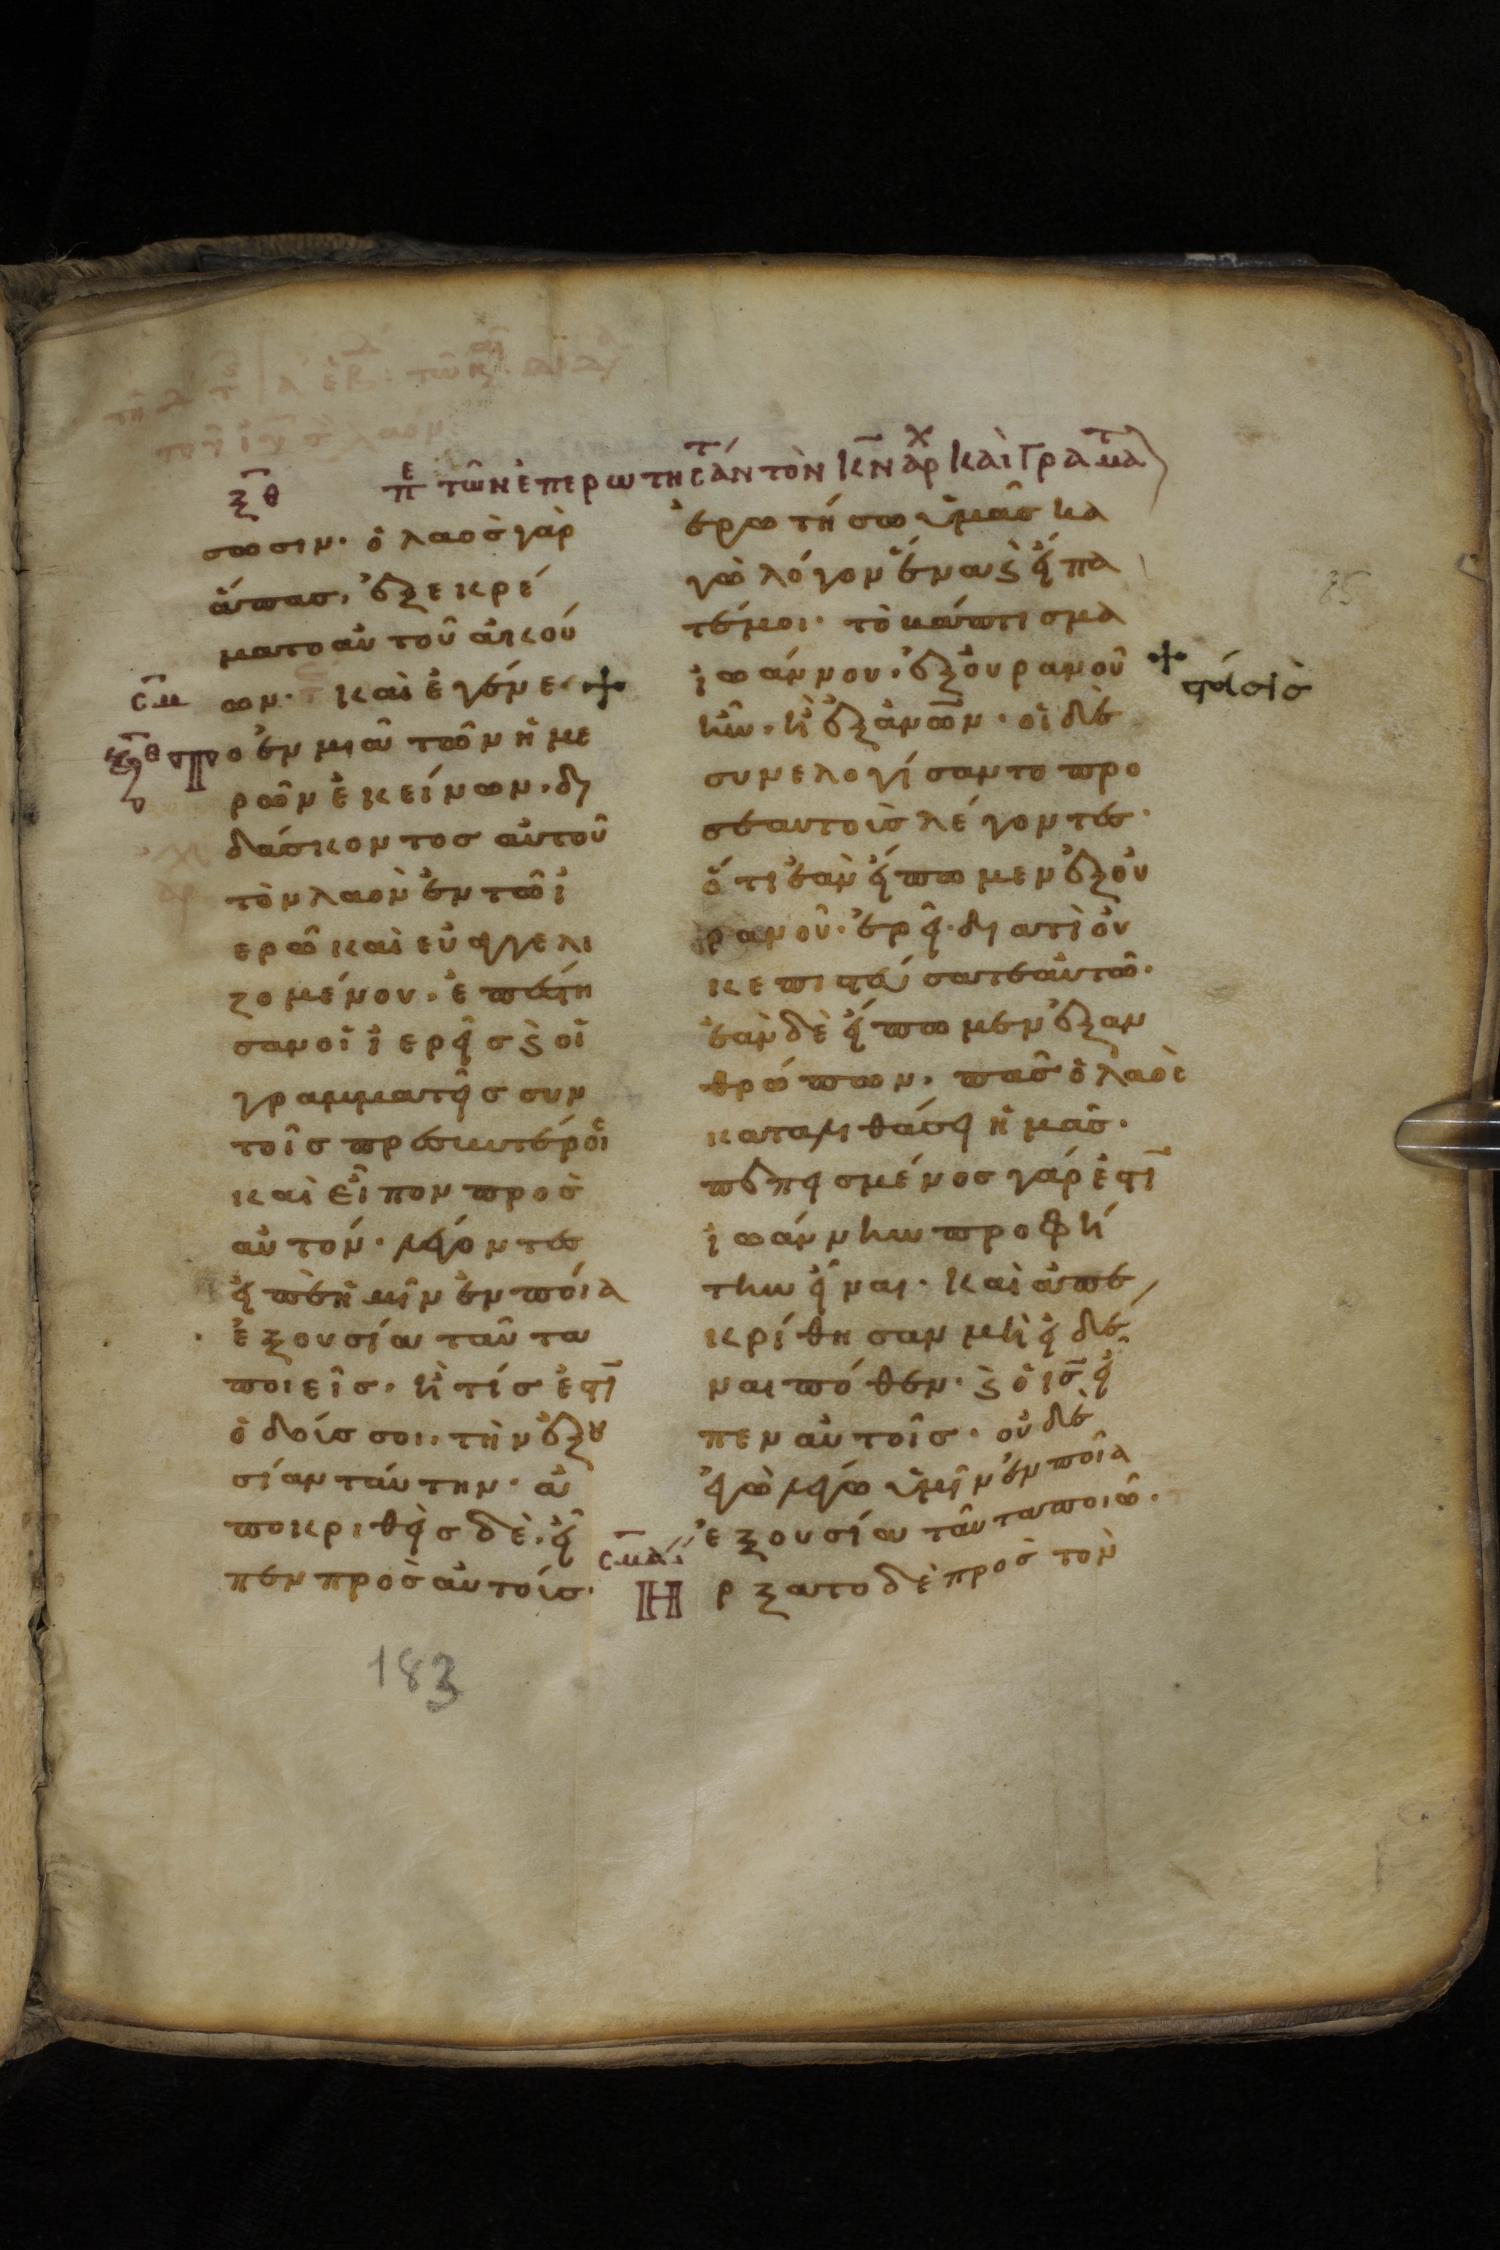 ξθ πε τῶν ἐπερωτησάντ τὸν κν ἀρχ καὶ γραμματ
σωσιν· ὁ λαὸς γὰρ
ἅπας, ἐξεκρέ
ματο αὐτοῦ ἀκού
σμ
ων· καὶ ἐγένε
ξθ
το ἐν μιᾶ τῶν ἡμε
ρῶν ἐκείνων, δι
δάσκοντος αὐτοῦ
τὸν λαὸν ἐν τῶ ἱ
ερῶ καὶ εὐαγγελι
ζομένου, ἐπέστη
σαν οἱ ἱερεῖς ϗ οἱ
γραμματεῖς συν
τοῖς πρεσβυτέροι
καὶ εἶπον πρὸς
αὐτόν· λέγοντες
εἰπὲ ἡμῖν ἐν ποία
ἐξουσία ταῦτα
ποιεῖς, ἢ τίς ἐστι
ὁ δούς σοι, τὴν ἐξου
σίαν ταύτην· ἀ
ποκριθεὶς δὲ, εἶ
πεν πρὸς αὐτούς·
ἐρωτήσω ὑμᾶς κα
γὼ λόγον ἕνα ϗ εἴπα
τέ μοι· τὸ βάπτισμα
ἰωάννου, ἐξ οὐρανοῦ
ἦν, ἢ ἐξ ἀνων· οἱ δὲ
φάσις
συνελογίσαντο προ
σεαυτοὺς λέγοντες·
ὅτι ἐὰν εἴπωμεν ἐξ οὐ
ρανοῦ· ἐρεῖ· διατί οὐ
κ ἐπιστεύσατε αὐτῶ·
ἐὰν δὲ εἴπωμεν ἐξ αν
θρώπων, πᾶς ὁ λαὸς
καταλιθάσει ἡμᾶς·
πεπεισμένος γάρ ἐστι
ἰωάννην προφή
την εἶναι· καὶ ἀπε
κρίθησαν μὴ εἰδέ
ναι πόθεν· ϗ ὁ ις εἶ
πεν αὐτοῖς· οὐδὲ
ἐγὼ λέγω ὑμῖν ἐν ποία
ἐξουσία ταῦτα ποιῶ·
σμα
Ηρξατο δὲ πρὸς τὸν
183